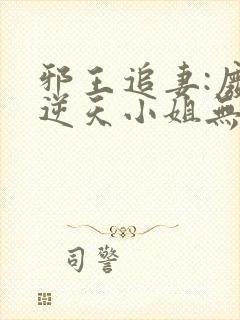 邪王追妻:
逆天小姐無
司警